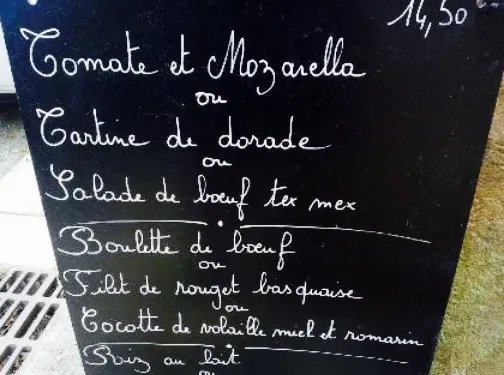 14,50
Tomate et Mozarella
ou
Tartine de dorade
ou
Salade de bœuf tex mex
Boulette de bœuf
ou
Filet de rouget basquaise
ou
Cocotte de volaille miel et romarin
Riz au lait
ou